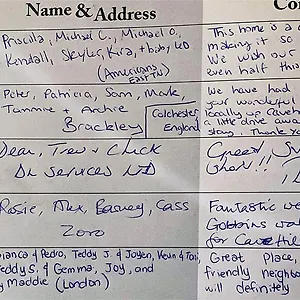 Name & Address
Co
Priscilla, Michael C., Michael O.,
Kendall, Skyler, Kira, + baby LO
(Americans
EAST TN)
This home is a
making it so
We wish our
even half this
Peter, Patricia, Sam, Mark,
Tammie + Archie
Brackley
Colchester
England
We have had
your wonderful
locally up
a little drive
stay. Thank Yo
Dean, Trev & Chick
Da Services
Great
Rosie, Alex, Barney, Cass
Zoro
Fantastic we
Gobbins wal
for Cave Hill
Bianca & Pedro, Teddy J. & Joyen, Kevin & Toni,
Teddy S. & Gemma, Joy, and
y Maddie (London)
Great Place,
friendly neighbo
will definitely